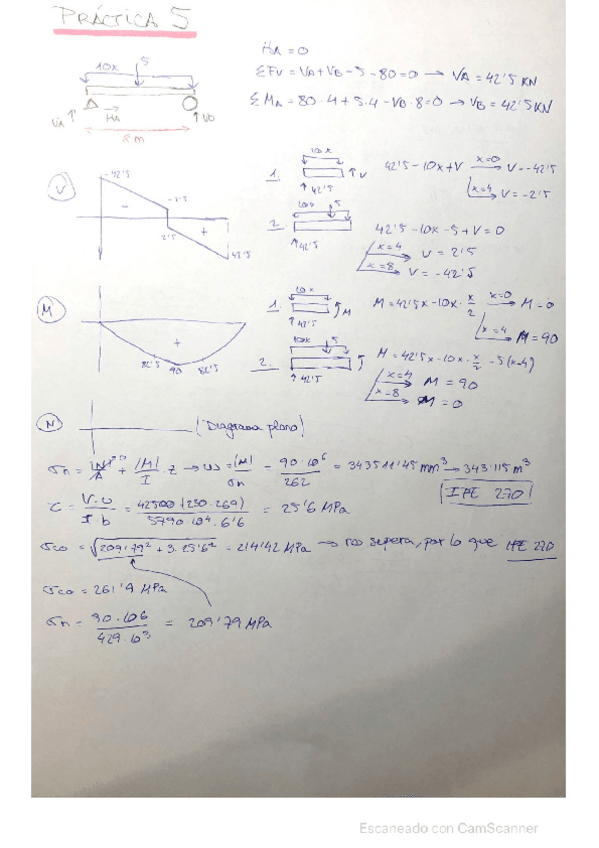 PRÁCTICA 5
10x 5
VA HA VB
8 m
HA = 0
ΣFV = VA + VB - 5 - 80 = 0 → VA = 42'5 KN
ΣMA = 80·4 + 5·4 - VB·8 = 0 → VB = 42'5 KN
V
-42'5
-
-2'5
2'5
+
42'5
1. 10x 42'5 V
42'5 - 10x + V x=0 V = -42'5
x=4 V = -2'5
2. 10x 5 42'5
42'5 - 10x - 5 + V = 0
x=4 V = 2'5
x=8 V = -42'5
M
+
82'5 90 82'5
1. 10x 42'5 M
M = 42'5x - 10x · x/2 x=0 M = 0
x=4 M = 90
2. 10x 5 42'5
M = 42'5x - 10x · x/2 - 5(x-4)
x=4 M = 90
x=8 M = 0
N
(Diagrama plano)
σn = |N|/A + |M|/I · z → ω = |M|/σn = 90·10⁶/262 = 343511'45 mm³ → 343'115 m³
IPE 270
τ = V·ω/I b = 42500 (250·269)/5790·10⁴·6'6 = 25'6 MPa
σco = √209'79² + 3·25'6² = 214'42 MPa → no supera, por lo que IPE 270
σco = 261'9 MPa
σn = 90·10⁶/429·10³ = 209'79 MPa
Escaneado con CamScanner